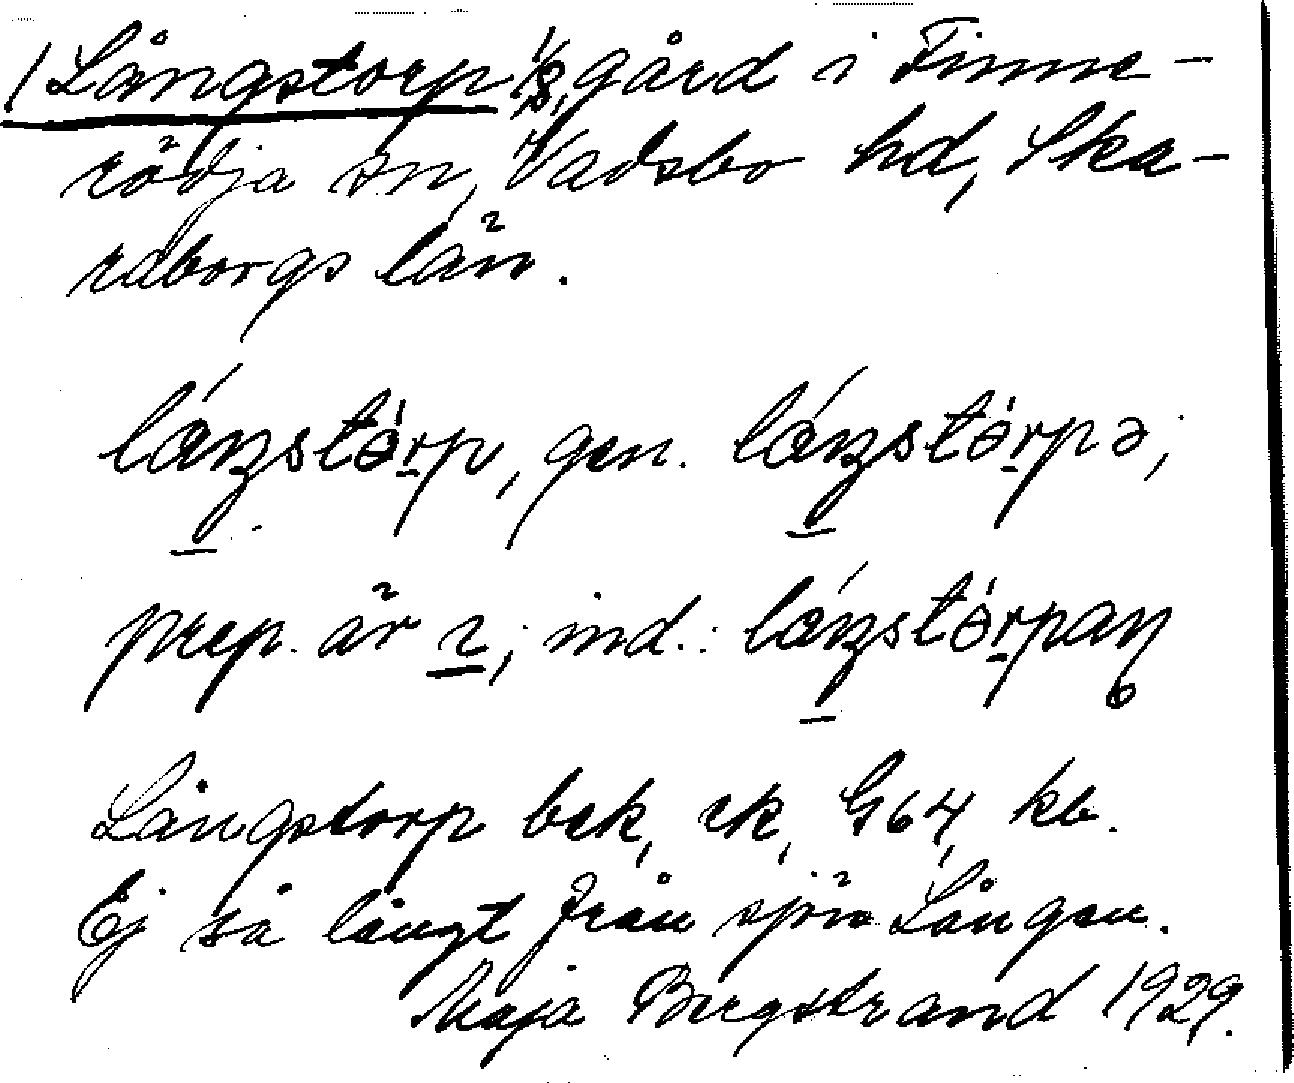 1 Långstorp, 1/8, gård i Finne-
rödja sn, Vadsbo hd, Ska-
raborgs län.
láŋstə́rp, gen. láŋstə́rpə;
prep. är ı; ind.: láŋstə́rpaŋ
Långstorp bek, ek, G64, kb.
Ej så långt från sjön Lången.
Maja Bergstrand 1929.